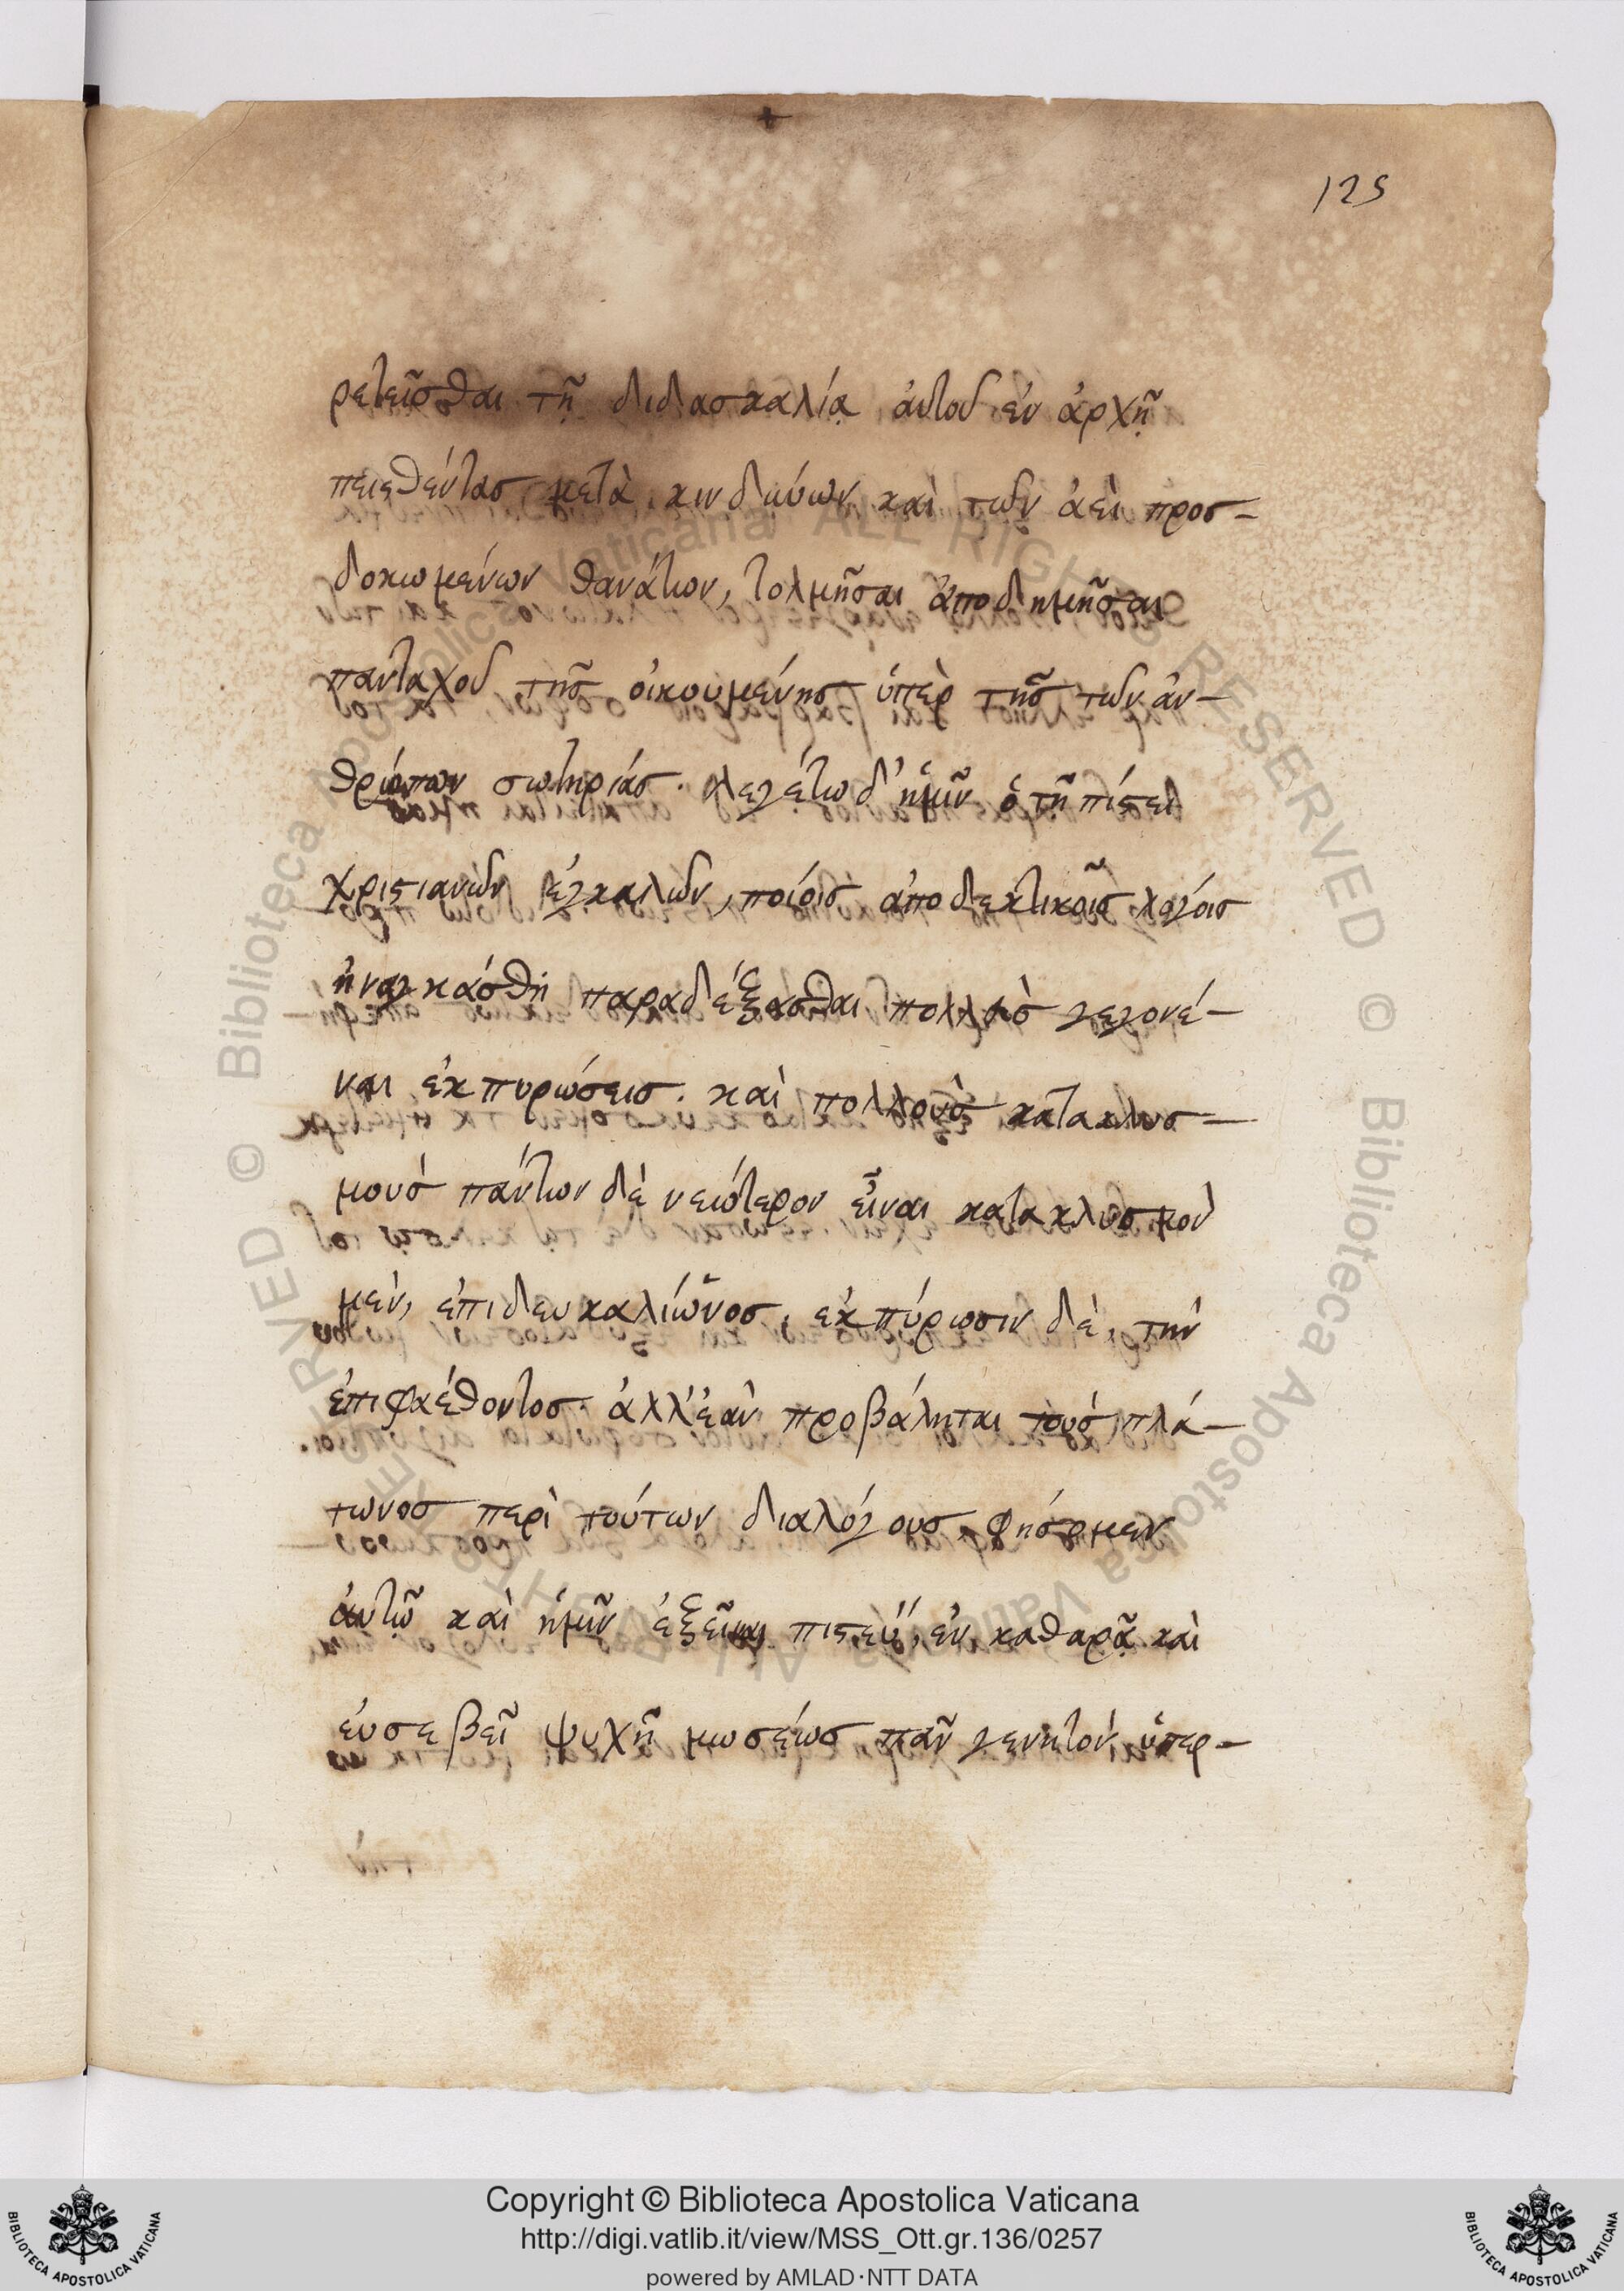 125
ρετεῖσθαι τῇ διδασκαλίᾳ ἀυτοῦ ἐν ἀρχῇ
πεισθέντας μετὰ κινδύνων καὶ τῶν ἀεὶ προσ-
δοκωμένων θανάτων, τολμῆσαι ἀποδημῆσαι
πανταχοῦ τῆς ὀικουμένης ὑπὲρ τῆς τῶν ἀν-
θρώπων σωτηρίάς. λεγέτω δ' ἡμῖν ὁ τῇ πίστει
χριστιανῶν ἐγκαλῶν, ποίοις ἀποδεκτικοῖς λόγοις
ἠναγκάσθη παραδέξασθαι πολλὰς γεγονέ-
ναι ἐκπυρώσεις. καὶ πολλοὺς κατακλυσ-
μούς πάντων δὲ νεώτερον εἶναι κατακλυσμὸν
μὲν, ἐπιδευκαλίωνος, ἐκπύρωσιν δὲ, τὴν
ἐπιφαέθοντος. ἀλλ' ἐὰν προβάληται τοὺς πλά-
τωνος περὶ τούτων διαλόγους, φήσομεν
ἀυτῷ καὶ ἡμῖν ἐξεῖναι πιστεύ", ἐν καθαρᾷ καὶ
ἐυσεβεῖ ψυχῇ μωσέως πᾶν γενητὸν ὑπερ-
Copyright © Biblioteca Apostolica Vaticana
http://digi.vatlib.it/view/MSS_Ott.gr.136/0257
powered by AMLAD·NTT DATA
BIBLIOTECA APOSTOLICA VATICANA
BIBLIOTECA APOSTOLICA VATICANA
© Biblioteca Apostolica Vaticana ALL RIGHTS RESERVED © Biblioteca Apostolica Vaticana ALL RIGHTS RESERVED